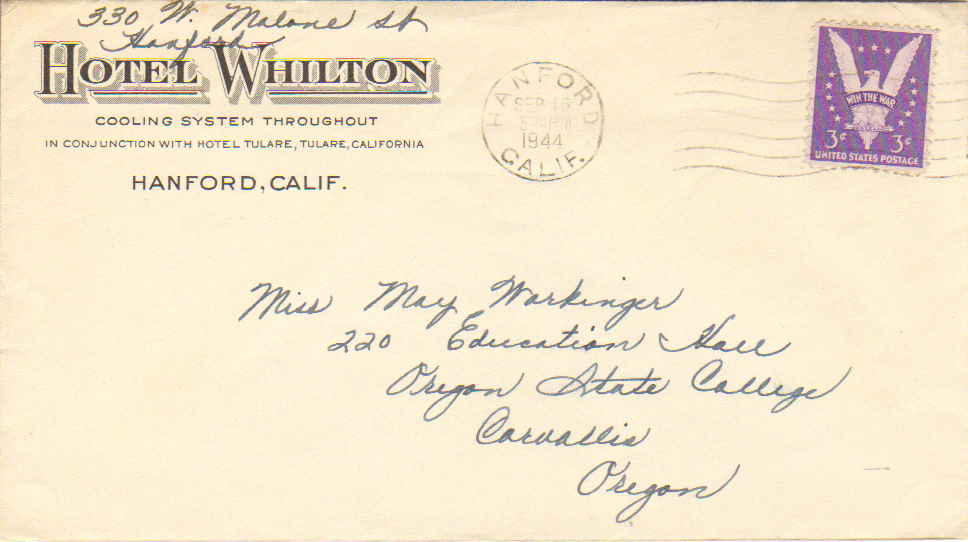 330 W. Malone St
Hanford
HOTEL WHILTON
COOLING SYSTEM THROUGHOUT
IN CONJUNCTION WITH HOTEL TULARE, TULARE, CALIFORNIA
HANFORD, CALIF.
HANFORD
SEP 16
1944
CALIF.
WIN THE WAR
3¢ 3¢
UNITED STATES POSTAGE
Miss May Workinger
220 Education Hall
Oregon State College
Corvallis
Oregon